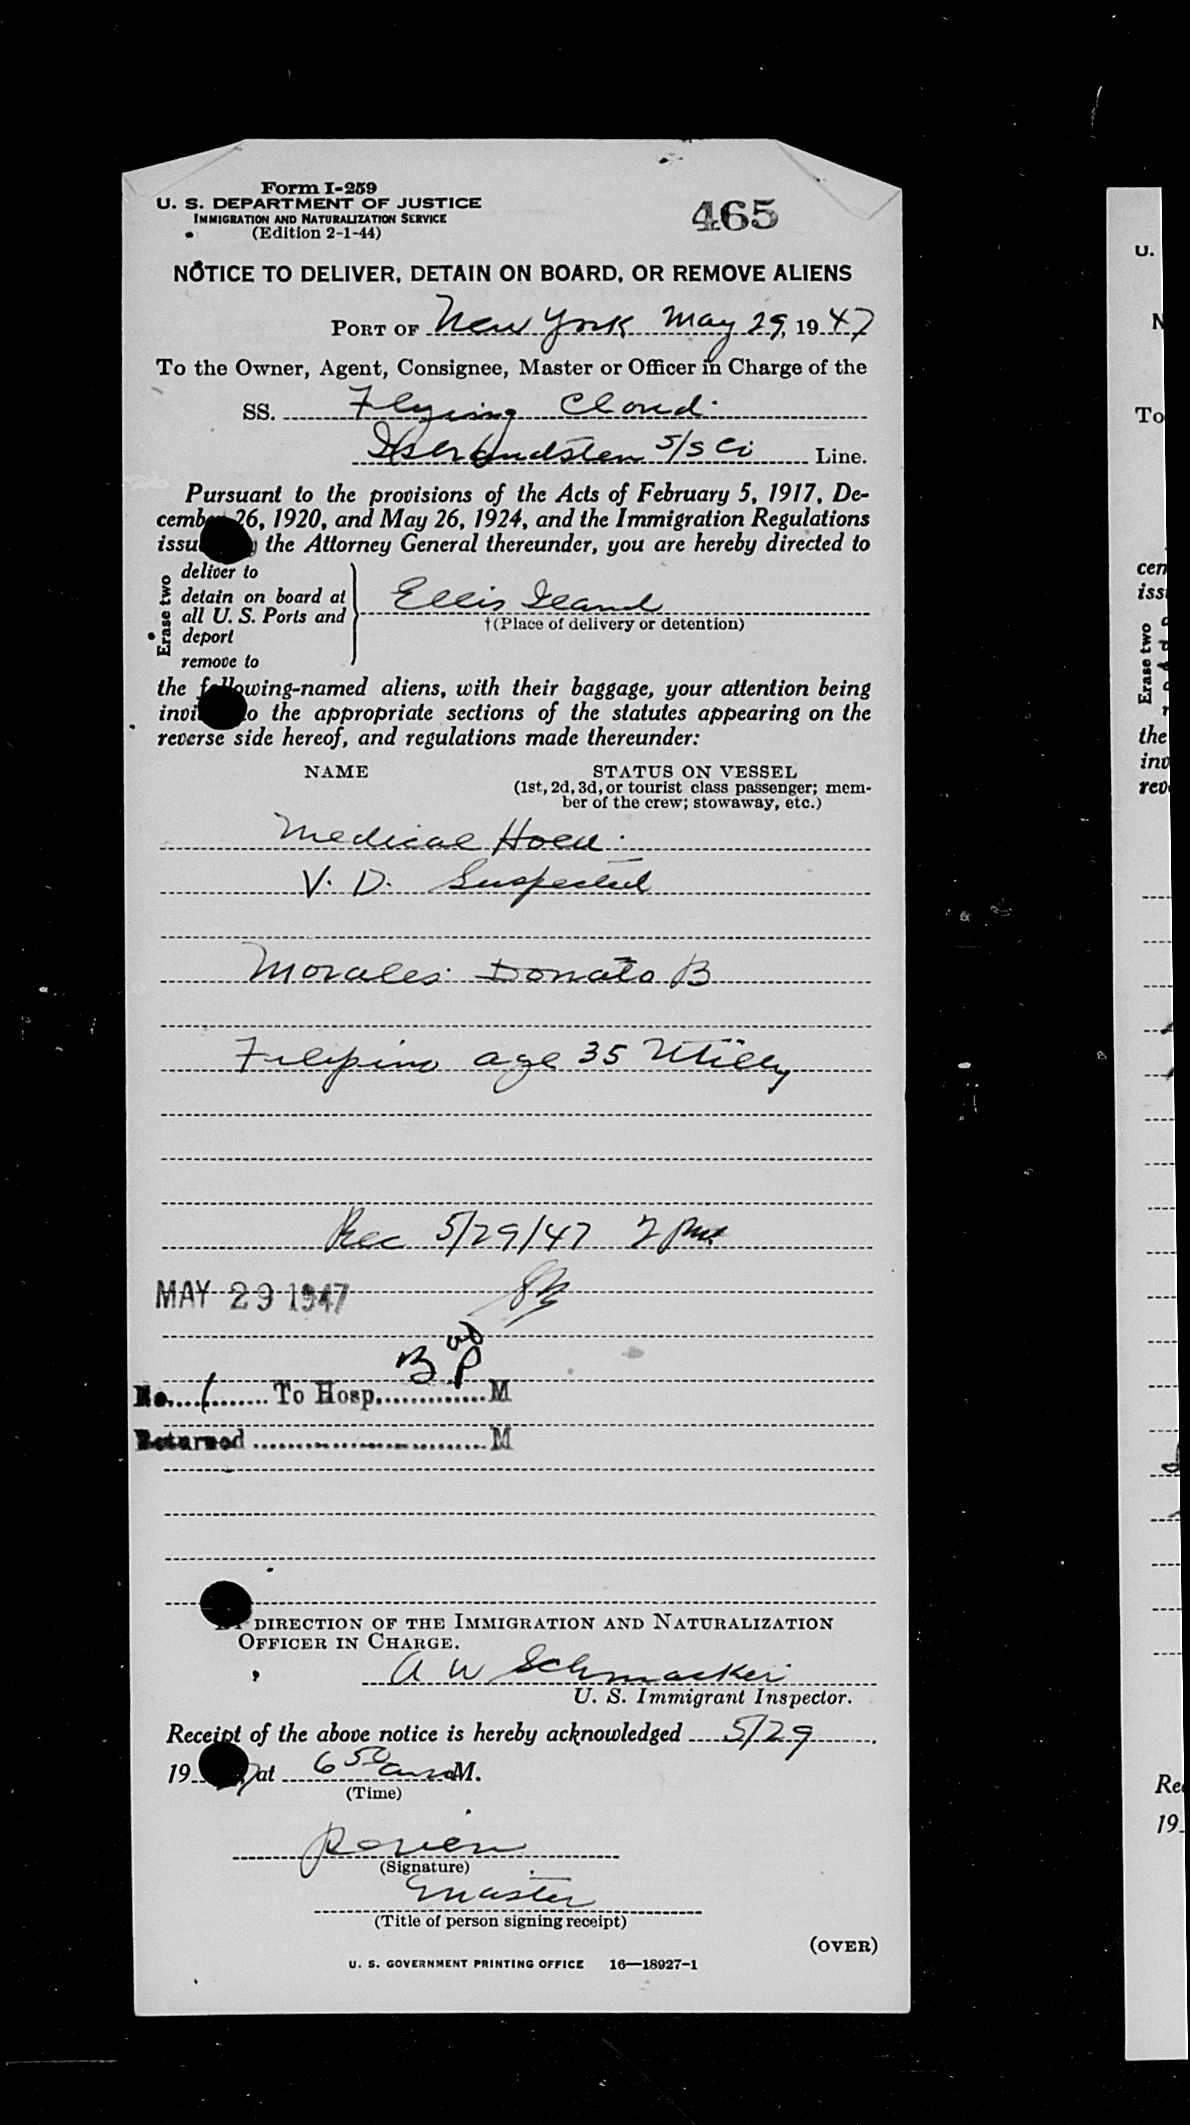 Form I-259
U. S. DEPARTMENT OF JUSTICE
IMMIGRATION AND NATURALIZATION SERVICE
(Edition 2-1-44)
465
NOTICE TO DELIVER, DETAIN ON BOARD, OR REMOVE ALIENS
PORT OF New York May 29, 1947
To the Owner, Agent, Consignee, Master or Officer in Charge of the
SS. Flying Cloud
Isbrandsten S/S Co Line.
Pursuant to the provisions of the Acts of February 5, 1917, De-
cember 26, 1920, and May 26, 1924, and the Immigration Regulations
issued the Attorney General thereunder, you are hereby directed to
Erase two
deliver to
detain on board at
all U. S. Ports and
deport
remove to
Ellis Island
†(Place of delivery or detention)
the following-named aliens, with their baggage, your attention being
invi to the appropriate sections of the statutes appearing on the
reverse side hereof, and regulations made thereunder:
NAME STATUS ON VESSEL
(1st, 2d, 3d, or tourist class passenger; mem-
ber of the crew; stowaway, etc.)
Medical Hold.
V. D. Suspected
Morales Donato B
Filipino age 35 Utility
Rec 5/29/47 2 PM
MAY 29 1947
No. 1 To Hosp. M
Returned M
DIRECTION OF THE IMMIGRATION AND NATURALIZATION
OFFICER IN CHARGE.
A W Schmacker
U. S. Immigrant Inspector.
Receipt of the above notice is hereby acknowledged 5/29
19 7 at 6 50 am M.
(Time)
(Signature)
Master
(Title of person signing receipt)
(OVER)
U. S. GOVERNMENT PRINTING OFFICE 16—18927-1